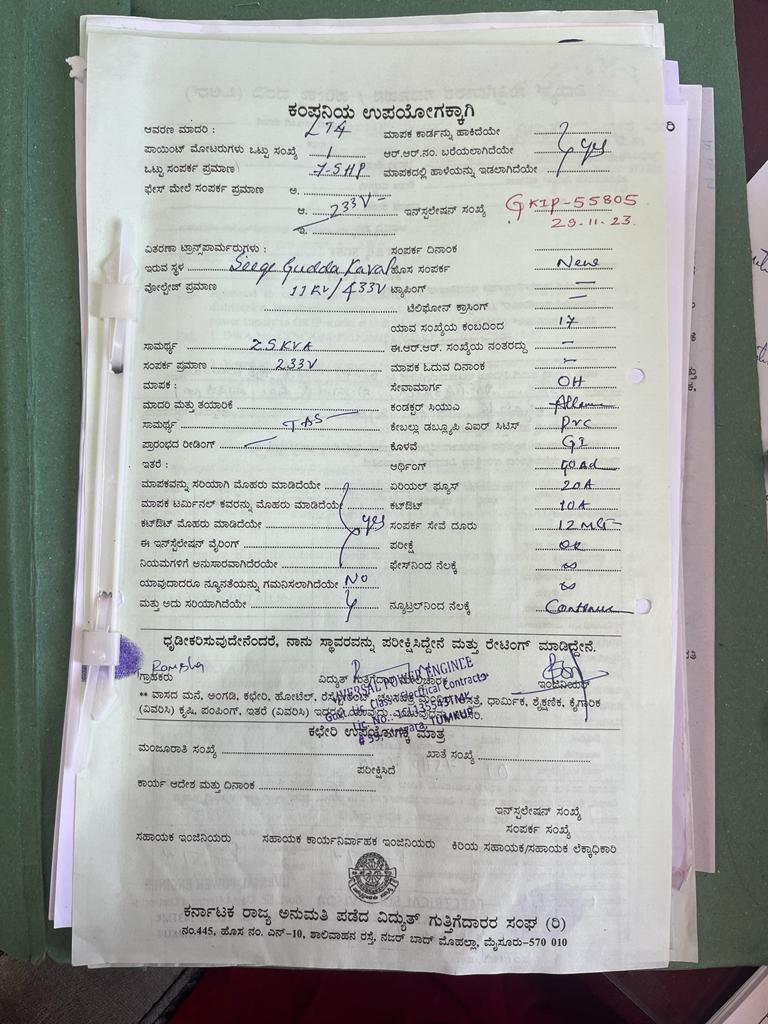 ಕಂಪನಿಯ ಉಪಯೋಗಕ್ಕಾಗಿ
ಆವರಣ ಮಾದರಿ : LT4 ಮಾಪಕ ಕಾರ್ಡನ್ನು ಹಾಕಿದೆಯೇ
ಪಾಯಿಂಟ್ ಮೋಟರುಗಳು ಒಟ್ಟು ಸಂಖ್ಯೆ 1 ಆರ್.ಆರ್.ನಂ. ಬರೆಯಲಾಗಿದೆಯೇ yes
ಒಟ್ಟು ಸಂಪರ್ಕ ಪ್ರಮಾಣ 7-5HP ಮಾಪಕದಲ್ಲಿ ಹಾಳೆಯನ್ನು ಇಡಲಾಗಿದೆಯೇ
ಫೇಸ್ ಮೇಲೆ ಸಂಪರ್ಕ ಪ್ರಮಾಣ ಅ.
ಆ. 233V ಇನ್‌ಸ್ಟಲೇಷನ್ ಸಂಖ್ಯೆ GKIP-55805
ಇ. 29.11.23.
ವಿತರಣಾ ಟ್ರಾನ್ಸ್‌ಪಾರ್ಮರುಗಳು : ಸಂಪರ್ಕ ದಿನಾಂಕ
ಇರುವ ಸ್ಥಳ Seege Gudda Kaval ಹೊಸ ಸಂಪರ್ಕ New
ವೋಲ್ಟೇಜ್ ಪ್ರಮಾಣ 11KV/433V ಟ್ಯಾಪಿಂಗ್ –
ಟೆಲಿಫೋನ್ ಕ್ರಾಸಿಂಗ್ –
ಯಾವ ಸಂಖ್ಯೆಯ ಕಂಬದಿಂದ 17
ಸಾಮರ್ಥ್ಯ 25KVA ಈ.ಆರ್.ಆರ್. ಸಂಖ್ಯೆಯ ನಂತರದ್ದು –
ಸಂಪರ್ಕ ಪ್ರಮಾಣ 233V ಮಾಪಕ ಓದುವ ದಿನಾಂಕ –
ಮಾಪಕ : ಸೇವಾಮಾರ್ಗ OH
ಮಾದರಿ ಮತ್ತು ತಯಾರಿಕೆ ಕಂಡಕ್ಟರ್ ಸಿಯುಎ
ಸಾಮರ್ಥ್ಯ ಕೇಬಲ್ಲು ಡಬ್ಲ್ಯೂಪಿ ಎಐರ್ ಸಿಟಿಸ್ PVC
ಪ್ರಾರಂಭದ ರೀಡಿಂಗ್ ಕೊಳವೆ GI
ಇತರೆ : ಆರ್ಥಿಂಗ್
ಮಾಪಕವನ್ನು ಸರಿಯಾಗಿ ಮೊಹರು ಮಾಡಿದೆಯೇ ಏರಿಯಲ್ ಫ್ಯೂಸ್ 20A
ಮಾಪಕ ಟರ್ಮಿನಲ್ ಕವರನ್ನು ಮೊಹರು ಮಾಡಿದೆಯೇ ಕಟ್‌ಔಟ್ 10A
ಕಟ್‌ಔಟ್ ಮೊಹರು ಮಾಡಿದೆಯೇ yes ಸಂಪರ್ಕ ಸೇವೆ ದೂರು
ಈ ಇನ್‌ಸ್ಟೆಲೇಷನ್ ವೈರಿಂಗ್ ಪರೀಕ್ಷೆ OK
ನಿಯಮಗಳಿಗೆ ಅನುಸಾರವಾಗಿದೆಯೇ ಫೇಸ್‌ನಿಂದ ನೆಲಕ್ಕೆ ∞
ಯಾವುದಾದರೂ ನ್ಯೂನತೆಯನ್ನು ಗಮನಿಸಲಾಗಿದೆಯೇ No ∞
ಮತ್ತು ಅದು ಸರಿಯಾಗಿದೆಯೇ ನ್ಯೂಟ್ರಲ್‌ನಿಂದ ನೆಲಕ್ಕೆ
ಧೃಢೀಕರಿಸುವುದೇನೆಂದರೆ, ನಾನು ಸ್ಥಾವರವನ್ನು ಪರೀಕ್ಷಿಸಿದ್ದೇನೆ ಮತ್ತು ರೇಟಿಂಗ್ ಮಾಡಿದ್ದೇನೆ.
ಗ್ರಾಹಕರು ವಿದ್ಯುತ್ ಇಂಜಿನಿಯರ್
UNIVERSAL POWER ENGINEE
Govt. Class Electrical Contractor
TUMKUR
** ವಾಸದ ಮನೆ, ಅಂಗಡಿ, ಕಛೇರಿ, ಹೋಟೆಲ್, ಧಾರ್ಮಿಕ, ಶೈಕ್ಷಣಿಕ, ಕೈಗಾರಿಕ
(ವಿವರಿಸಿ) ಕೃಷಿ, ಪಂಪಿಂಗ್, ಇತರೆ (ವಿವರಿಸಿ)
ಕಛೇರಿ ಉಪಯೋಗಕ್ಕೆ ಮಾತ್ರ
ಮಂಜೂರಾತಿ ಸಂಖ್ಯೆ ಖಾತೆ ಸಂಖ್ಯೆ
ಪರೀಕ್ಷಿಸಿದೆ
ಕಾರ್ಯ ಆದೇಶ ಮತ್ತು ದಿನಾಂಕ
ಇನ್‌ಸ್ಟಲೇಷನ್ ಸಂಖ್ಯೆ
ಸಂಪರ್ಕ ಸಂಖ್ಯೆ
ಸಹಾಯಕ ಇಂಜಿನಿಯರು ಸಹಾಯಕ ಕಾರ್ಯನಿರ್ವಾಹಕ ಇಂಜಿನಿಯರು ಕಿರಿಯ ಸಹಾಯಕ/ಸಹಾಯಕ ಲೆಕ್ಕಾಧಿಕಾರಿ
ಕರ್ನಾಟಕ ರಾಜ್ಯ ಅನುಮತಿ ಪಡೆದ ವಿದ್ಯುತ್ ಗುತ್ತಿಗೆದಾರರ ಸಂಘ (ರಿ)
ನಂ.445, ಹೊಸ ನಂ. ಎನ್-10, ಶಾಲಿವಾಹನ ರಸ್ತೆ, ನಜರ್ ಬಾದ್ ಮೊಹಲ್ಲಾ, ಮೈಸೂರು-570 010